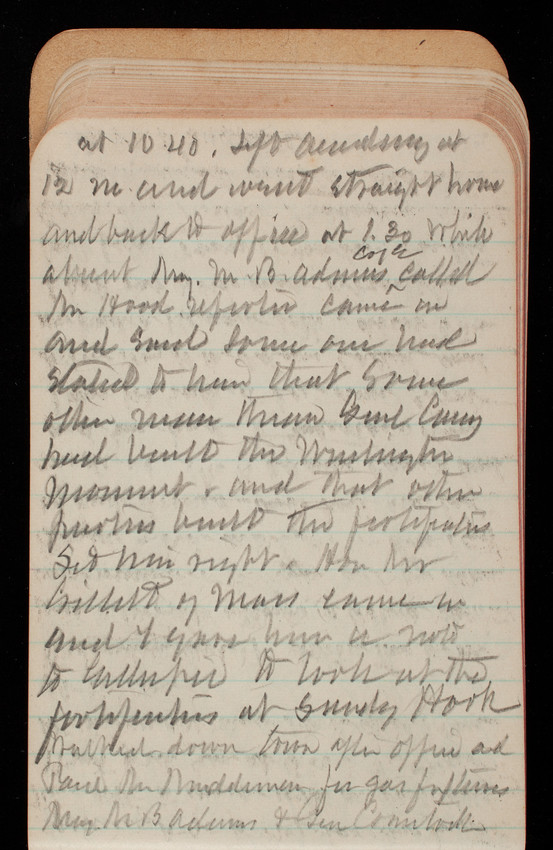 at 10 40. Left Academy at
12 m and went straight home
and back to office at 1.30 While
absent Maj. M. B. Adams, CofE called
Mr Hood reporter came in
and said some one had
stated to him that some
other man than Genl Casey
had built the Washington
Monument and that other
parties built the fortifications
Set him right. Hon Mr
Gillett of Mass came in
and I gave him a note
to Gillespie to look at the
fortifications at Sandy Hook
Walked down town after office and
Paid Mr Muddiman for gas fixtures
Maj M B Adams & Gen Comstock